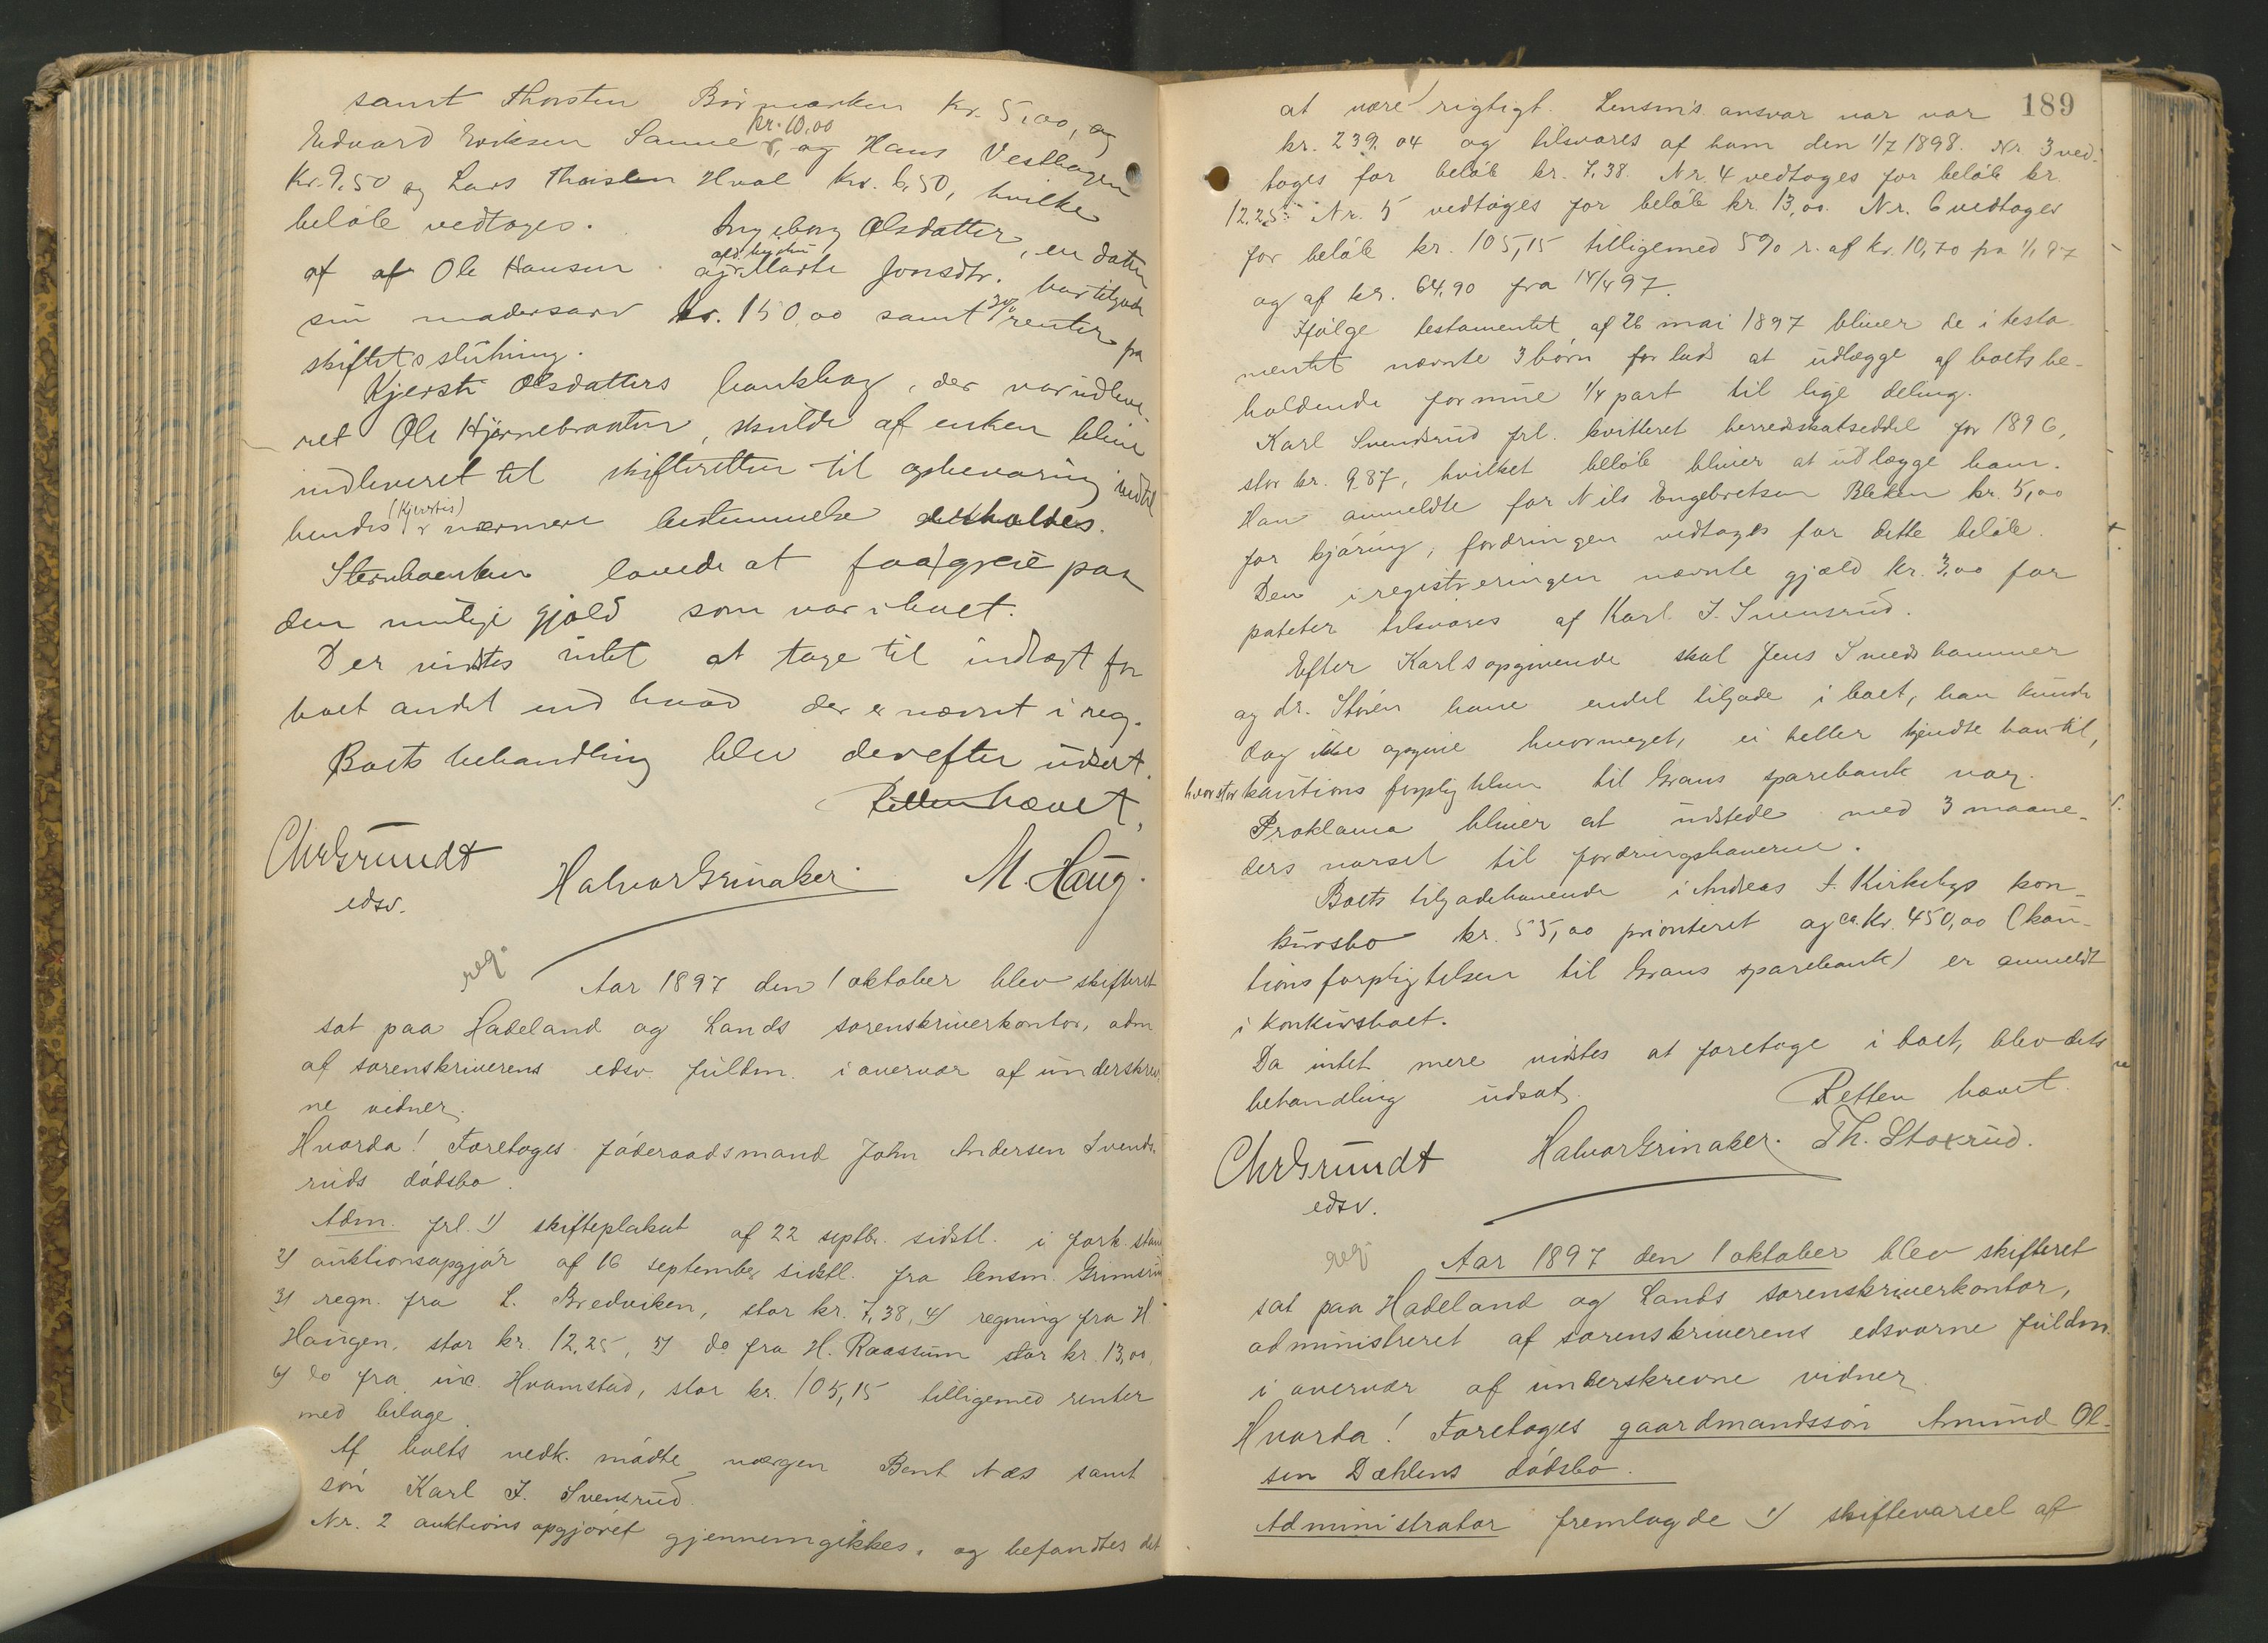 samt Thorsten Börmarken kr. 5,00, og
Kr. 10,00
Edvard Eriksen Sanne, og Hans Vestbagen
kr. 9,50 og Lars Thoislen Hval kr. 6,50, hvilke
beløb vedtoges. Ingeborg Olsdatter, en datter
af af Ole Hansen og Marte Jonsdtr. har tilgode
sin mødrearv kr. 150,00 samt 3% renter fra
skiftets slutning.
Kjersti Olsdatters bankbog, der var udleve-
ret Ole Hjørnebraaten, skulde af enken blive
indleveret til skifteretten til opbevaring indtil
(Kjerstis)
hendes nærmere bestemmelse
lovede at faa greie paa
den mulige gjæld som var i boet.
Der vidstes intet at tage til indtægt for
boet andet end hvad der er nævnt i reg.
Boets behandling blev derefter udsat.
Retten hævet,
Chr Grundt
edsv.
Halvor Grinaker.
M. Haug.
reg.
Aar 1897 den 1 oktober blev skifteret
sat paa Hadeland og Lands sorenskriverkontor, adm
af sorenskriverens edsv. fuldm. i overvær af underskrev-
ne vidner.
Hvorda! Foretoges føderaadsmand John Andersen Svends-
ruds dødsbo.
Adm. frl. 1) skifteplakat af 22 septbr. sidstl. i fork. stand
2) auktionsopgjør af 16 september sidstl. fra lensm. Grimsrud
3) regn. fra L. Bredviken, stor kr. 7,38, 4) regning fra H.
Haugen, stor kr. 12,25, 5) do fra H. Raassum stor kr. 13,00,
6) do fra Hvamstad, stor kr. 105,15 tilligemed renter
med bilage.
Af boets vedk. mødte værgen Bent Næs samt
søn Karl J. Svensrud.
Nr. 2 auktionsopgjøret gjennemgikkes, og befandtes det
189
at være rigtigt. Lensm's ansvar var var
kr. 239.04 og tilsvares af ham den 1/7 1898. Nr. 3 ved-
toges for beløb kr. 7,38. Nr. 4 vedtoges for beløb kr.
12.25. Nr. 5 vedtoges for beløb kr. 13,00. Nr. 6 vedtoges
for beløb kr. 105,15 tilligemed 5% r. af kr. 10,70 fra 1/1 97
og af kr. 64,90 fra 14/4 97.
Ifølge testamentet af 26 mai 1897 bliver de i testa-
mentet nævnte 3 børn forlods at udlægge af boets be-
holdende formue 1/4 part til lige deling.
Karl Svendsrud frl. kvitteret herredskatseddel for 1896,
stor kr. 9.87, hvilket beløb bliver at udlægge ham.
Han anmeldte for Nils Engebretsen Bleken kr. 5,00
for kjøring, fordringen vedtoges for dette beløb.
Den i registreringen nævnte gjæld kr. 3,00 for
poteter tilsvares af Karl J. Svensrud.
Efter Karls opgivende skal Jens Smedshammer
og dr. Støren have endel tilgode i boet, han kunde
dog ikke opgive hvormeget, ei heller kjendte han til,
hvor stor kautionsforpligtelsen til Grans sparebank var.
Proklama bliver at udstede med 3 maane-
ders varsel til fordringshaverne.
Boets tilgodehavende i Andreas A. Kirkebys kon-
kursbo kr. 55,00 prioriteret og ca. kr. 450,00 (kau-
tionsforpligtelsen til Grans sparebank) er anmeldt
i konkursboet.
Da intet mere vidstes at foretage i boet, blev dets
behandling udsat.
Retten hævet.
Chr Grundt
edsv.
Halvor Grinaker. Th. Stoxrud.
reg.
Aar 1897 den 1 oktober blev skifteret
sat paa Hadeland og Lands sorenskriverkontor,
administreret af sorenskriverens edsvorne fuldm.
i overvær af underskrevne vidner
Hvorda! Foretoges gaardmandssøn Amund Ol-
sen Dæhlens dødsbo.
Administrator fremlagde 1) skiftevarsel af